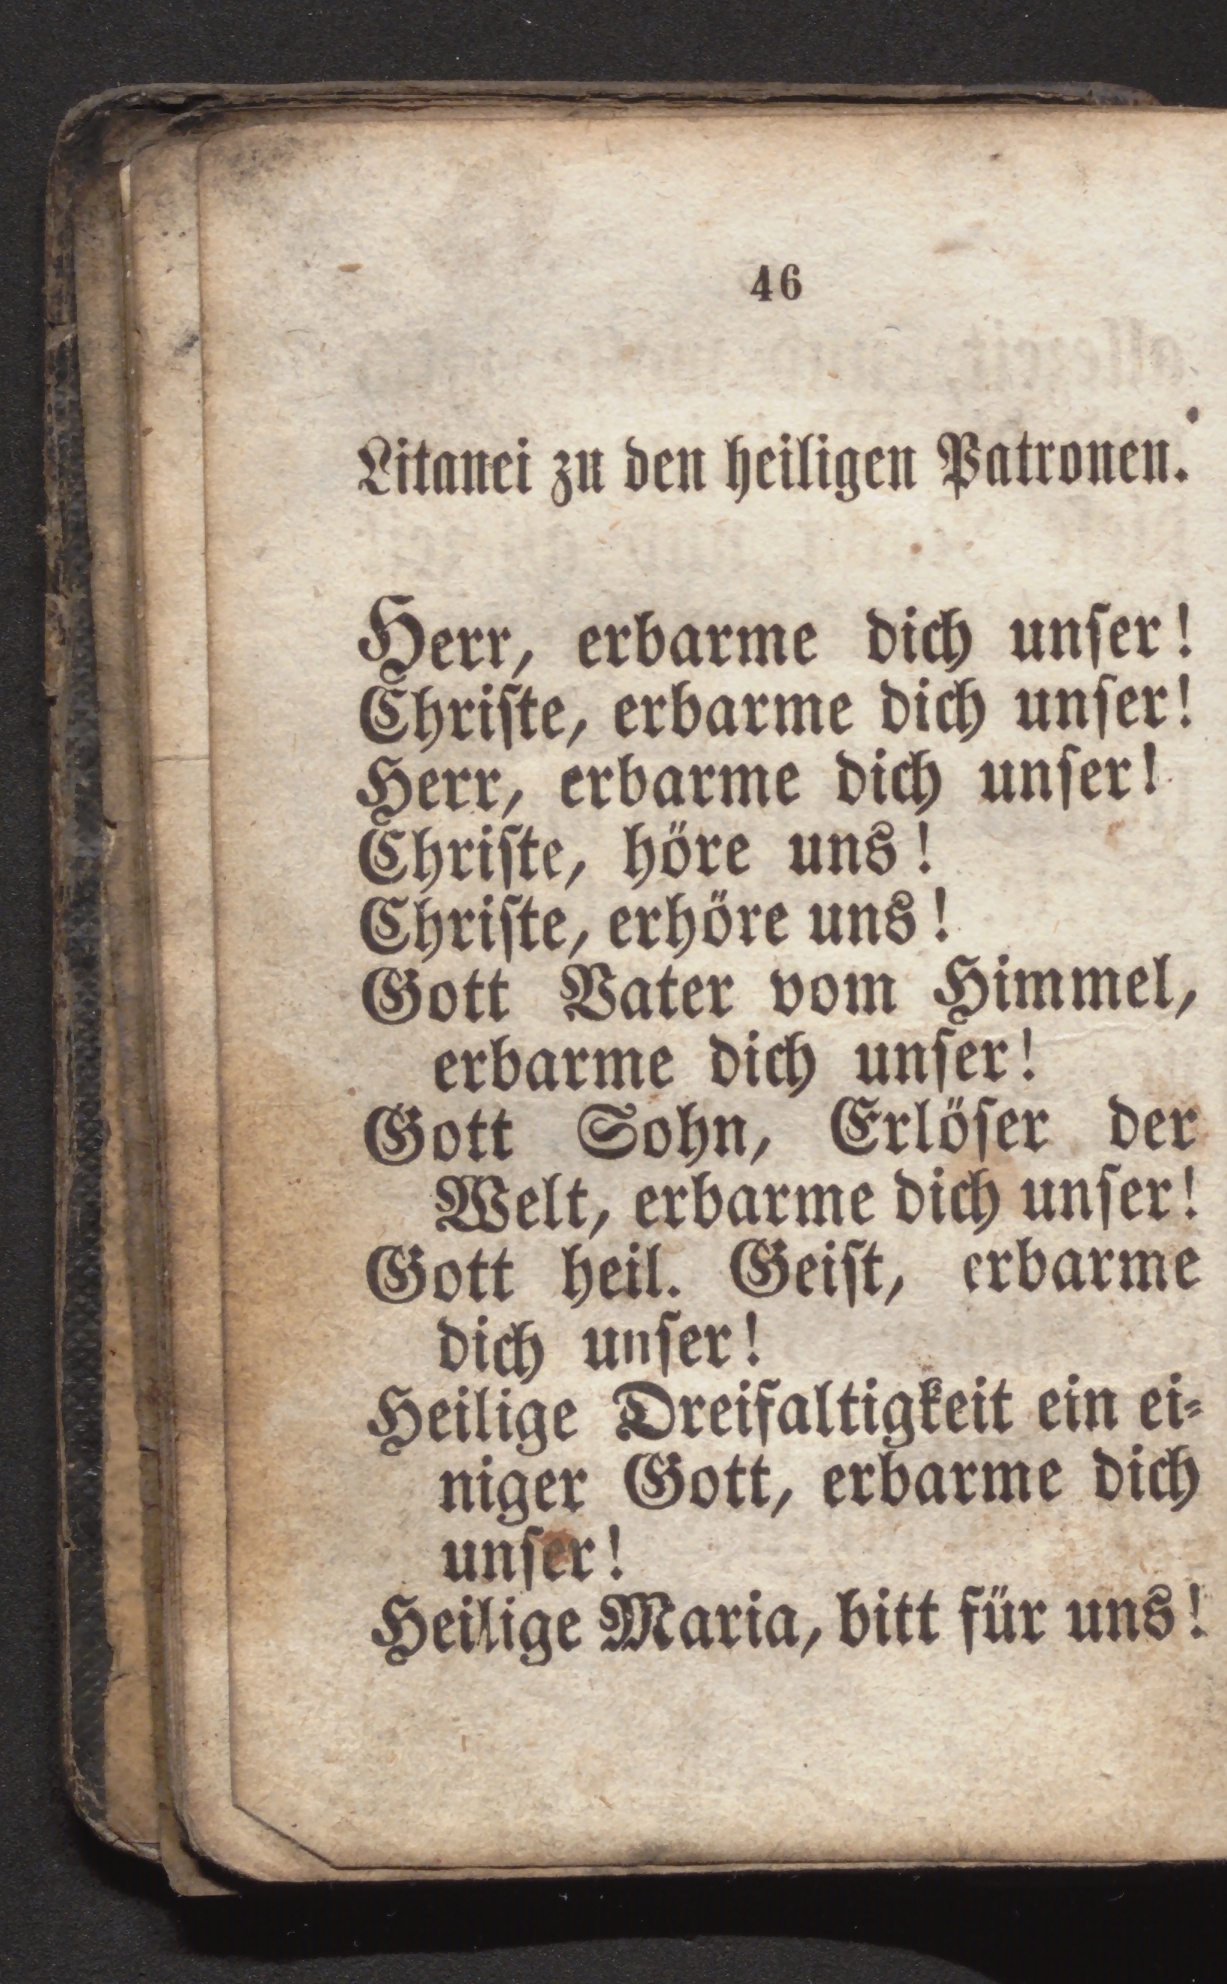 46
Litanei zu den heiligen Patronen.
Herr, erbarme dich unſer!
Chriſte, erbarme dich unſer!
Herr, erbarme dich unſer!
Chriſte, höre uns!
Chriſte, erhöre uns!
Gott Vater vom Himmel,
erbarme dich unſer!
Gott Sohn, Erlöſer der
Welt, erbarme dich unſer!
Gott heil. Geiſt, erbarme
dich unſer!
Heilige Dreifaltigkeit ein ei⸗
niger Gott, erbarme dich
unſer!
Heilige Maria, bitt für uns!